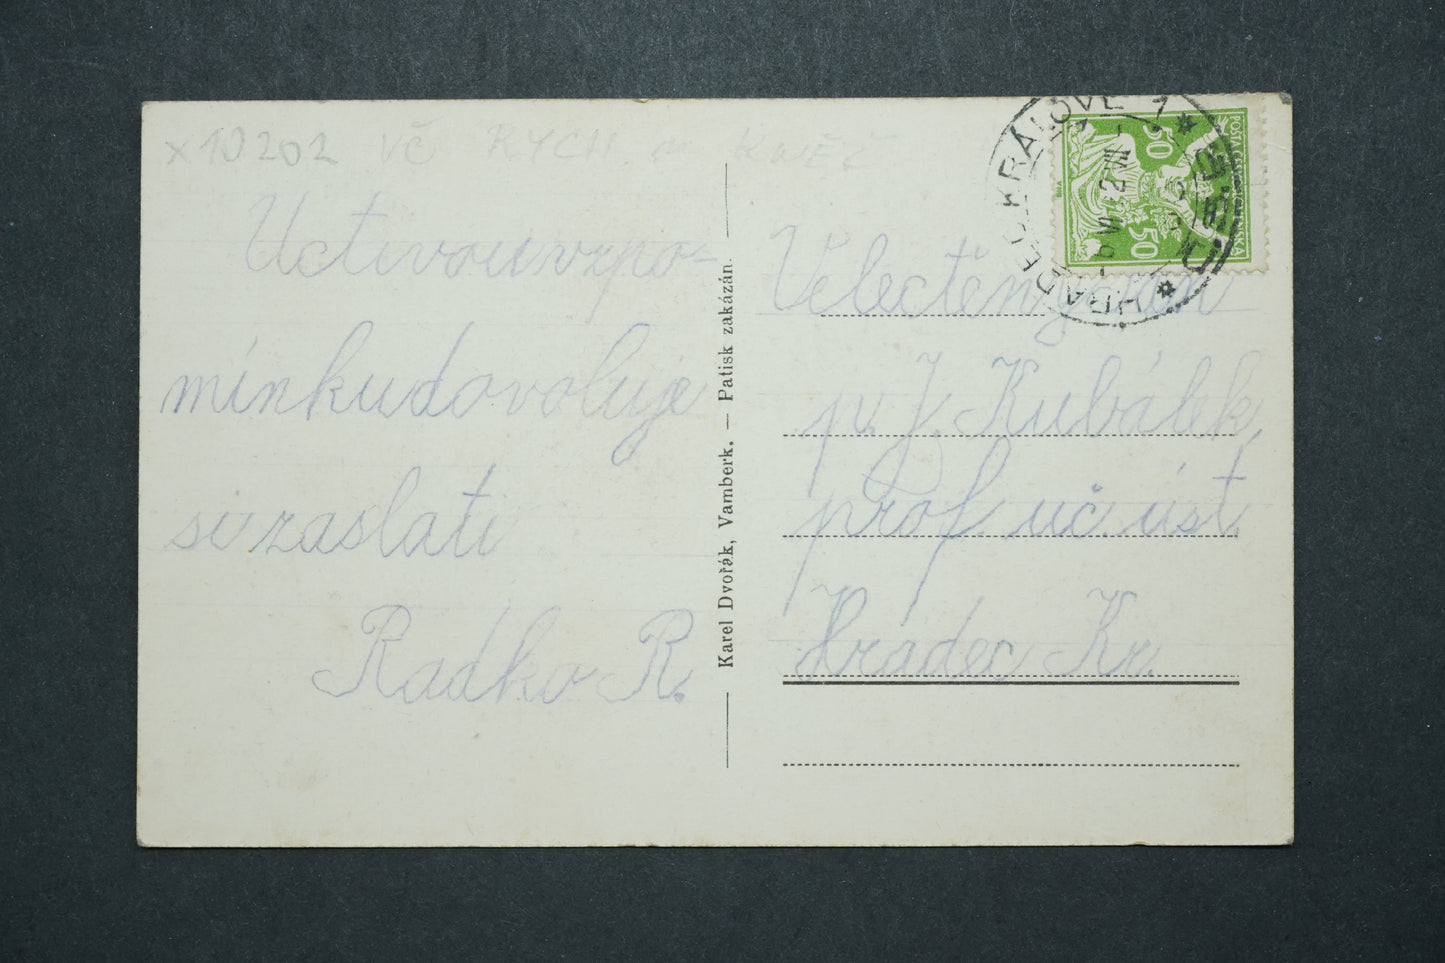 x 10202 VČ RYCH. n KNĚŽ
Uctivou vzpo-
mínku dovoluje
si zaslati
Radko R.
Karel Dvořák, Vamberk. — Patisk zakázán.
HRADEC KRÁLOVÉ 1
50
50
Velectěný pán
p. J. Kubálek,
prof. uč. úst.
Hradec Kr.